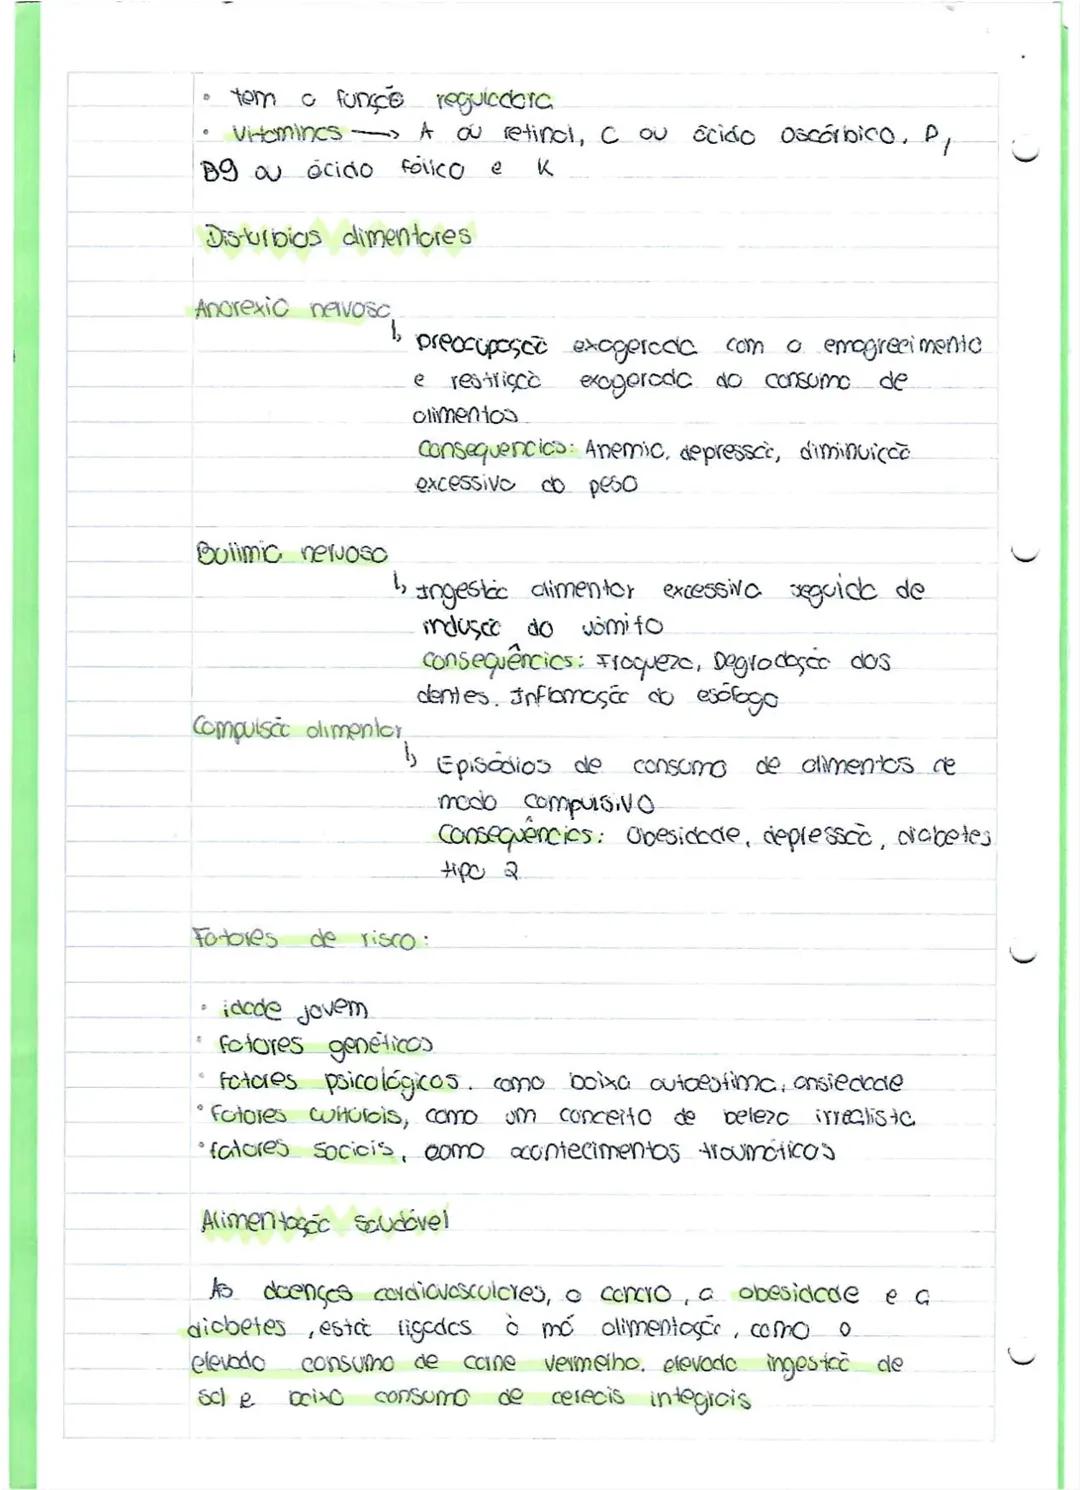 • tem a função reguladora
• Vitaminas → A ou retinol, C ou ácido ascórbico, D,
B9 ou ácido fólico e K
Distúrbios alimentares
Anorexia nervosa
↳ preocupação exagerada com o emagrecimento
e restrição exagerada do consumo de
alimentos
Consequencias: Anemia, depressão, diminuição
excessiva do peso
Bulimia nervosa
↳ Ingestão alimentar excessiva seguida de
indusão do vômito
Consequências: Fraqueza, Degradação dos
dentes. Inflamação do esófago
Compulsão alimentar
↳ Episódios de consumo de alimentos de
modo compulsivo
Consequências: Obesidade, depressão, diabetes
tipo 2
Fatores de risco:
• idade jovem
• fatores genéticos
• fatores psicológicos. como baixa autoestima, ansiedade
• fatores culturais, como um conceito de beleza irrealista
• fatores sociais, como acontecimentos traumáticos
Alimentação saudável
As doenças cardiovasculares, o cancro, a obesidade e a
diabetes, está ligadas à má alimentação, como o
elevado consumo de carne vermelha. elevada ingestão de
sal e baixo consumo de cereais integrais